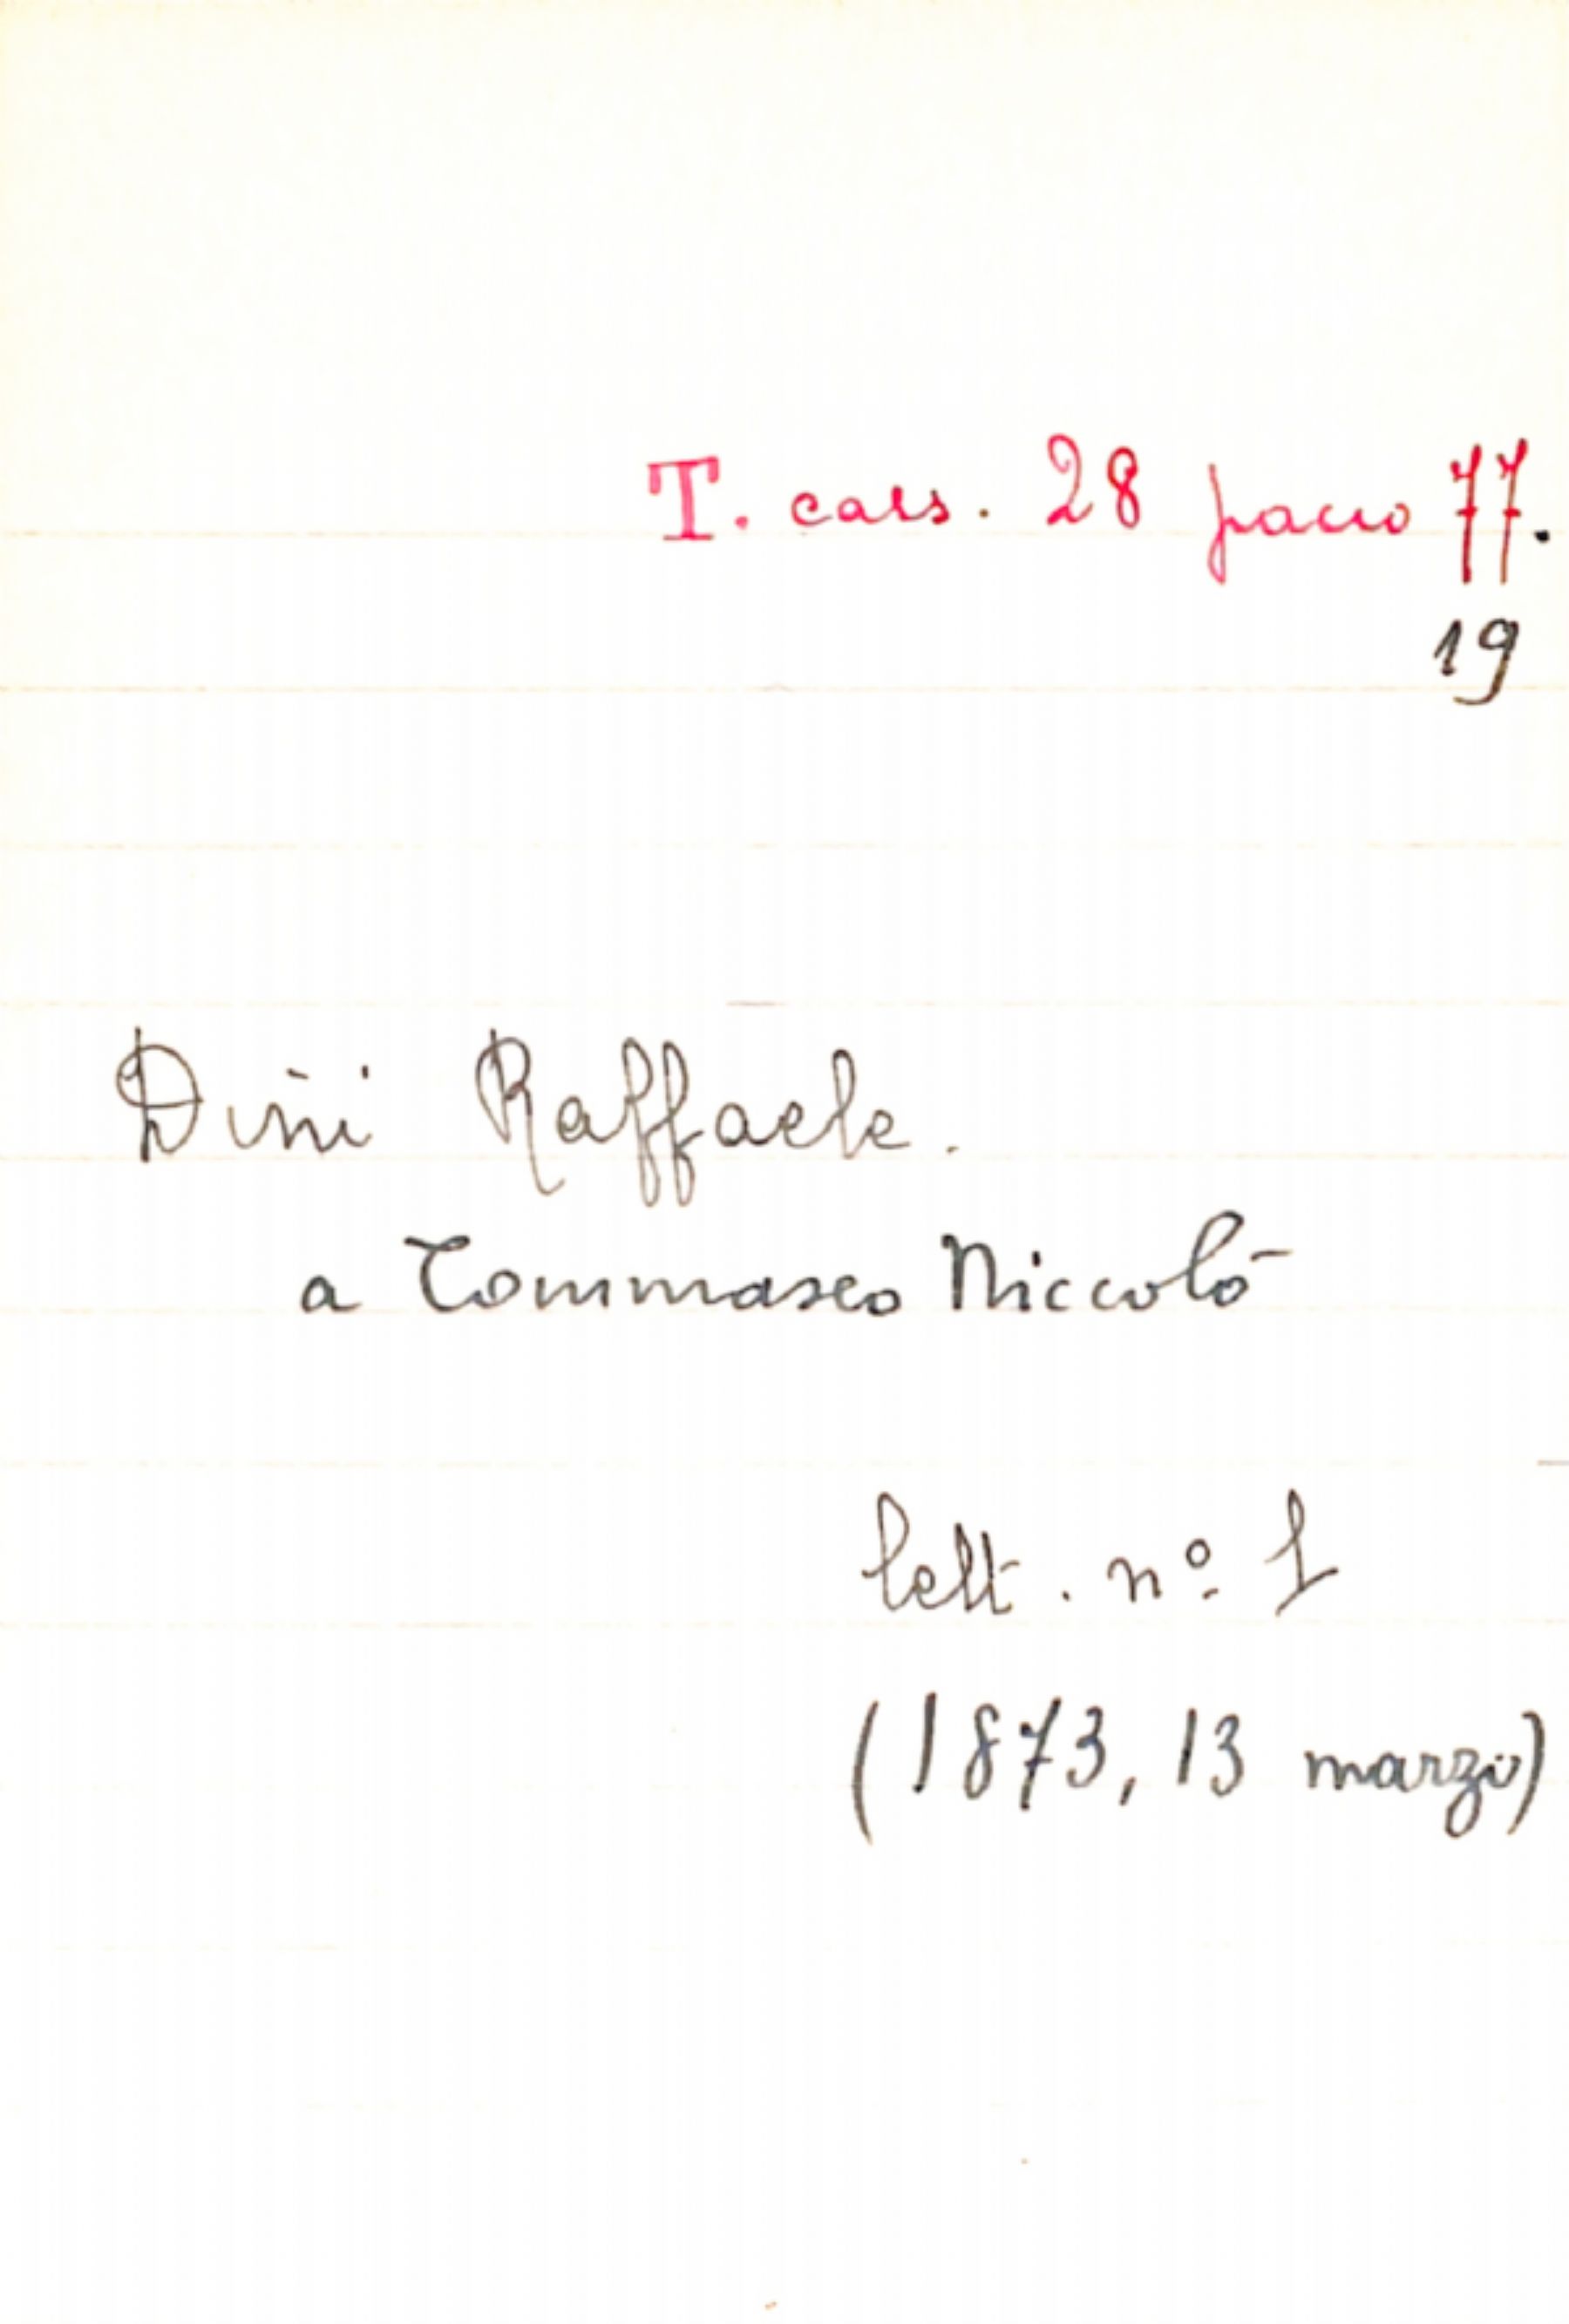 T. cass. 28 pacco 77.
19
Dini Raffaele.
a Tommaseo Niccolò
lett. nº 1
(1873, 13 marzo)